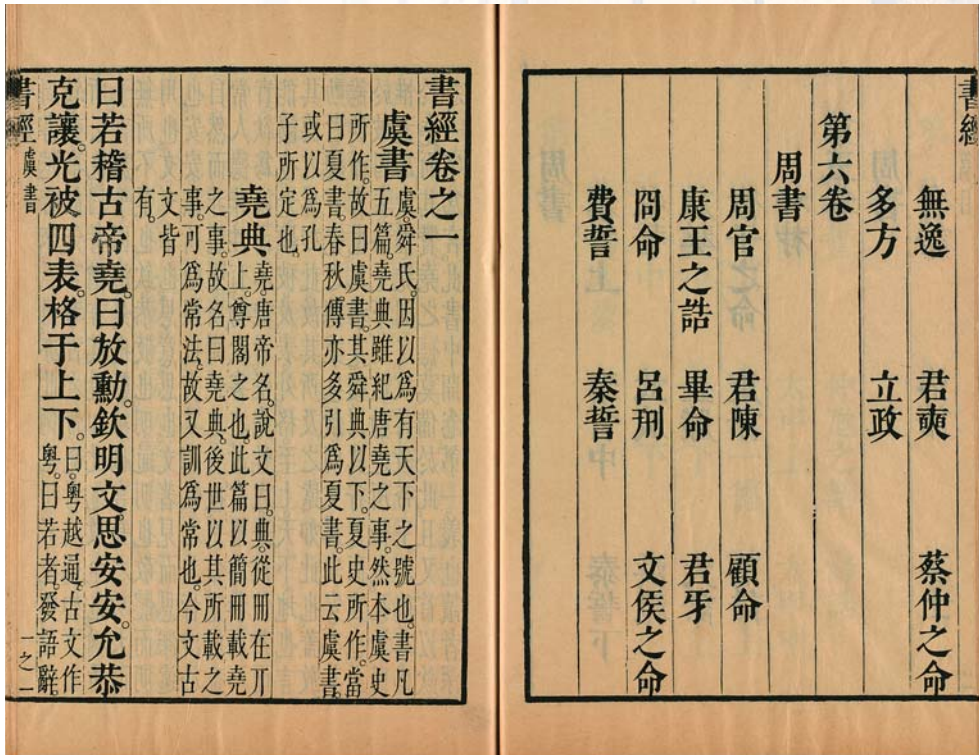 書經
無逸 君奭 蔡仲之命
多方 立政
第六卷
周書
周官 君陳 顧命
康王之誥 畢命 君牙
冏命 呂刑 文侯之命
費誓 秦誓
書經卷之一
虞書
虞。舜氏。因以爲有天下之號也。書凡
五篇。堯典雖紀唐堯之事。然本虞史
所作。故曰虞書。其舜典以下。夏史所作。當
曰夏書。春秋傳亦多引爲夏書。此云虞書。
或以爲孔
子所定也。
堯典
堯。唐帝名。說文曰。典。從冊在丌
上。尊閣之也。此篇以簡冊載堯
之事。故名曰堯典。後世以其所載之
事。可爲常法。故又訓爲常也。今文古
文皆
有。
曰若稽古帝堯。曰放勳。欽明文思安安。允恭
克讓。光被四表。格于上下。
曰。粤越通。古文作
粤。曰若者。發語辭。
書經 虞書 一之一